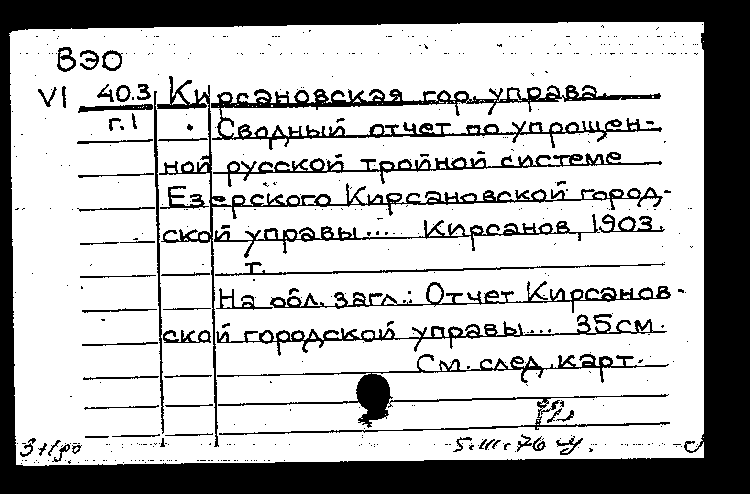 ВЭО
VI 40.3 Кирсановская гор. управа.
г.1 Сводный отчет по упрощен-
ной русской тройной системе
Езерского Кирсановской город-
ской управы... Кирсанов, 1903.
т.
На обл. загл.: Отчет Кирсанов-
ской городской управы... 35см.
См. след. карт.
5.III.76